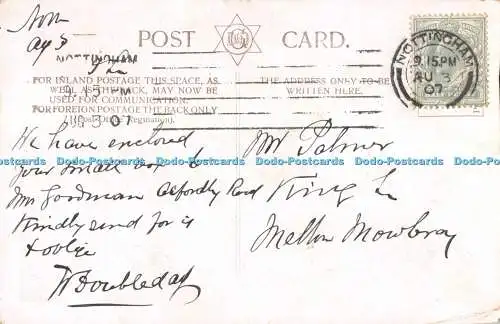 Nottm
Aug 3
POST CARD.
NOTTINGHAM
9.15 PM
AU 3
07
FOR INLAND POSTAGE THIS SPACE, AS
WELL AS THE BACK, MAY NOW BE
USED FOR COMMUNICATION.
FOR FOREIGN POSTAGE THE BACK ONLY
(Post Office Regulation).
THE ADDRESS ONLY TO BE
WRITTEN HERE.
NOTTINGHAM
9.15PM
AU 3
07
We have enclosed
your small box to
Mrs Goodman Asfordby Road
Kindly send for it
& oblige
W Doubleday
Mr Palmer
King St
Melton Mowbray
Dodo-Postcards Dodo-Postcards Dodo-Postcards Dodo-Postcards Dodo-Postcards Dodo-Postcards